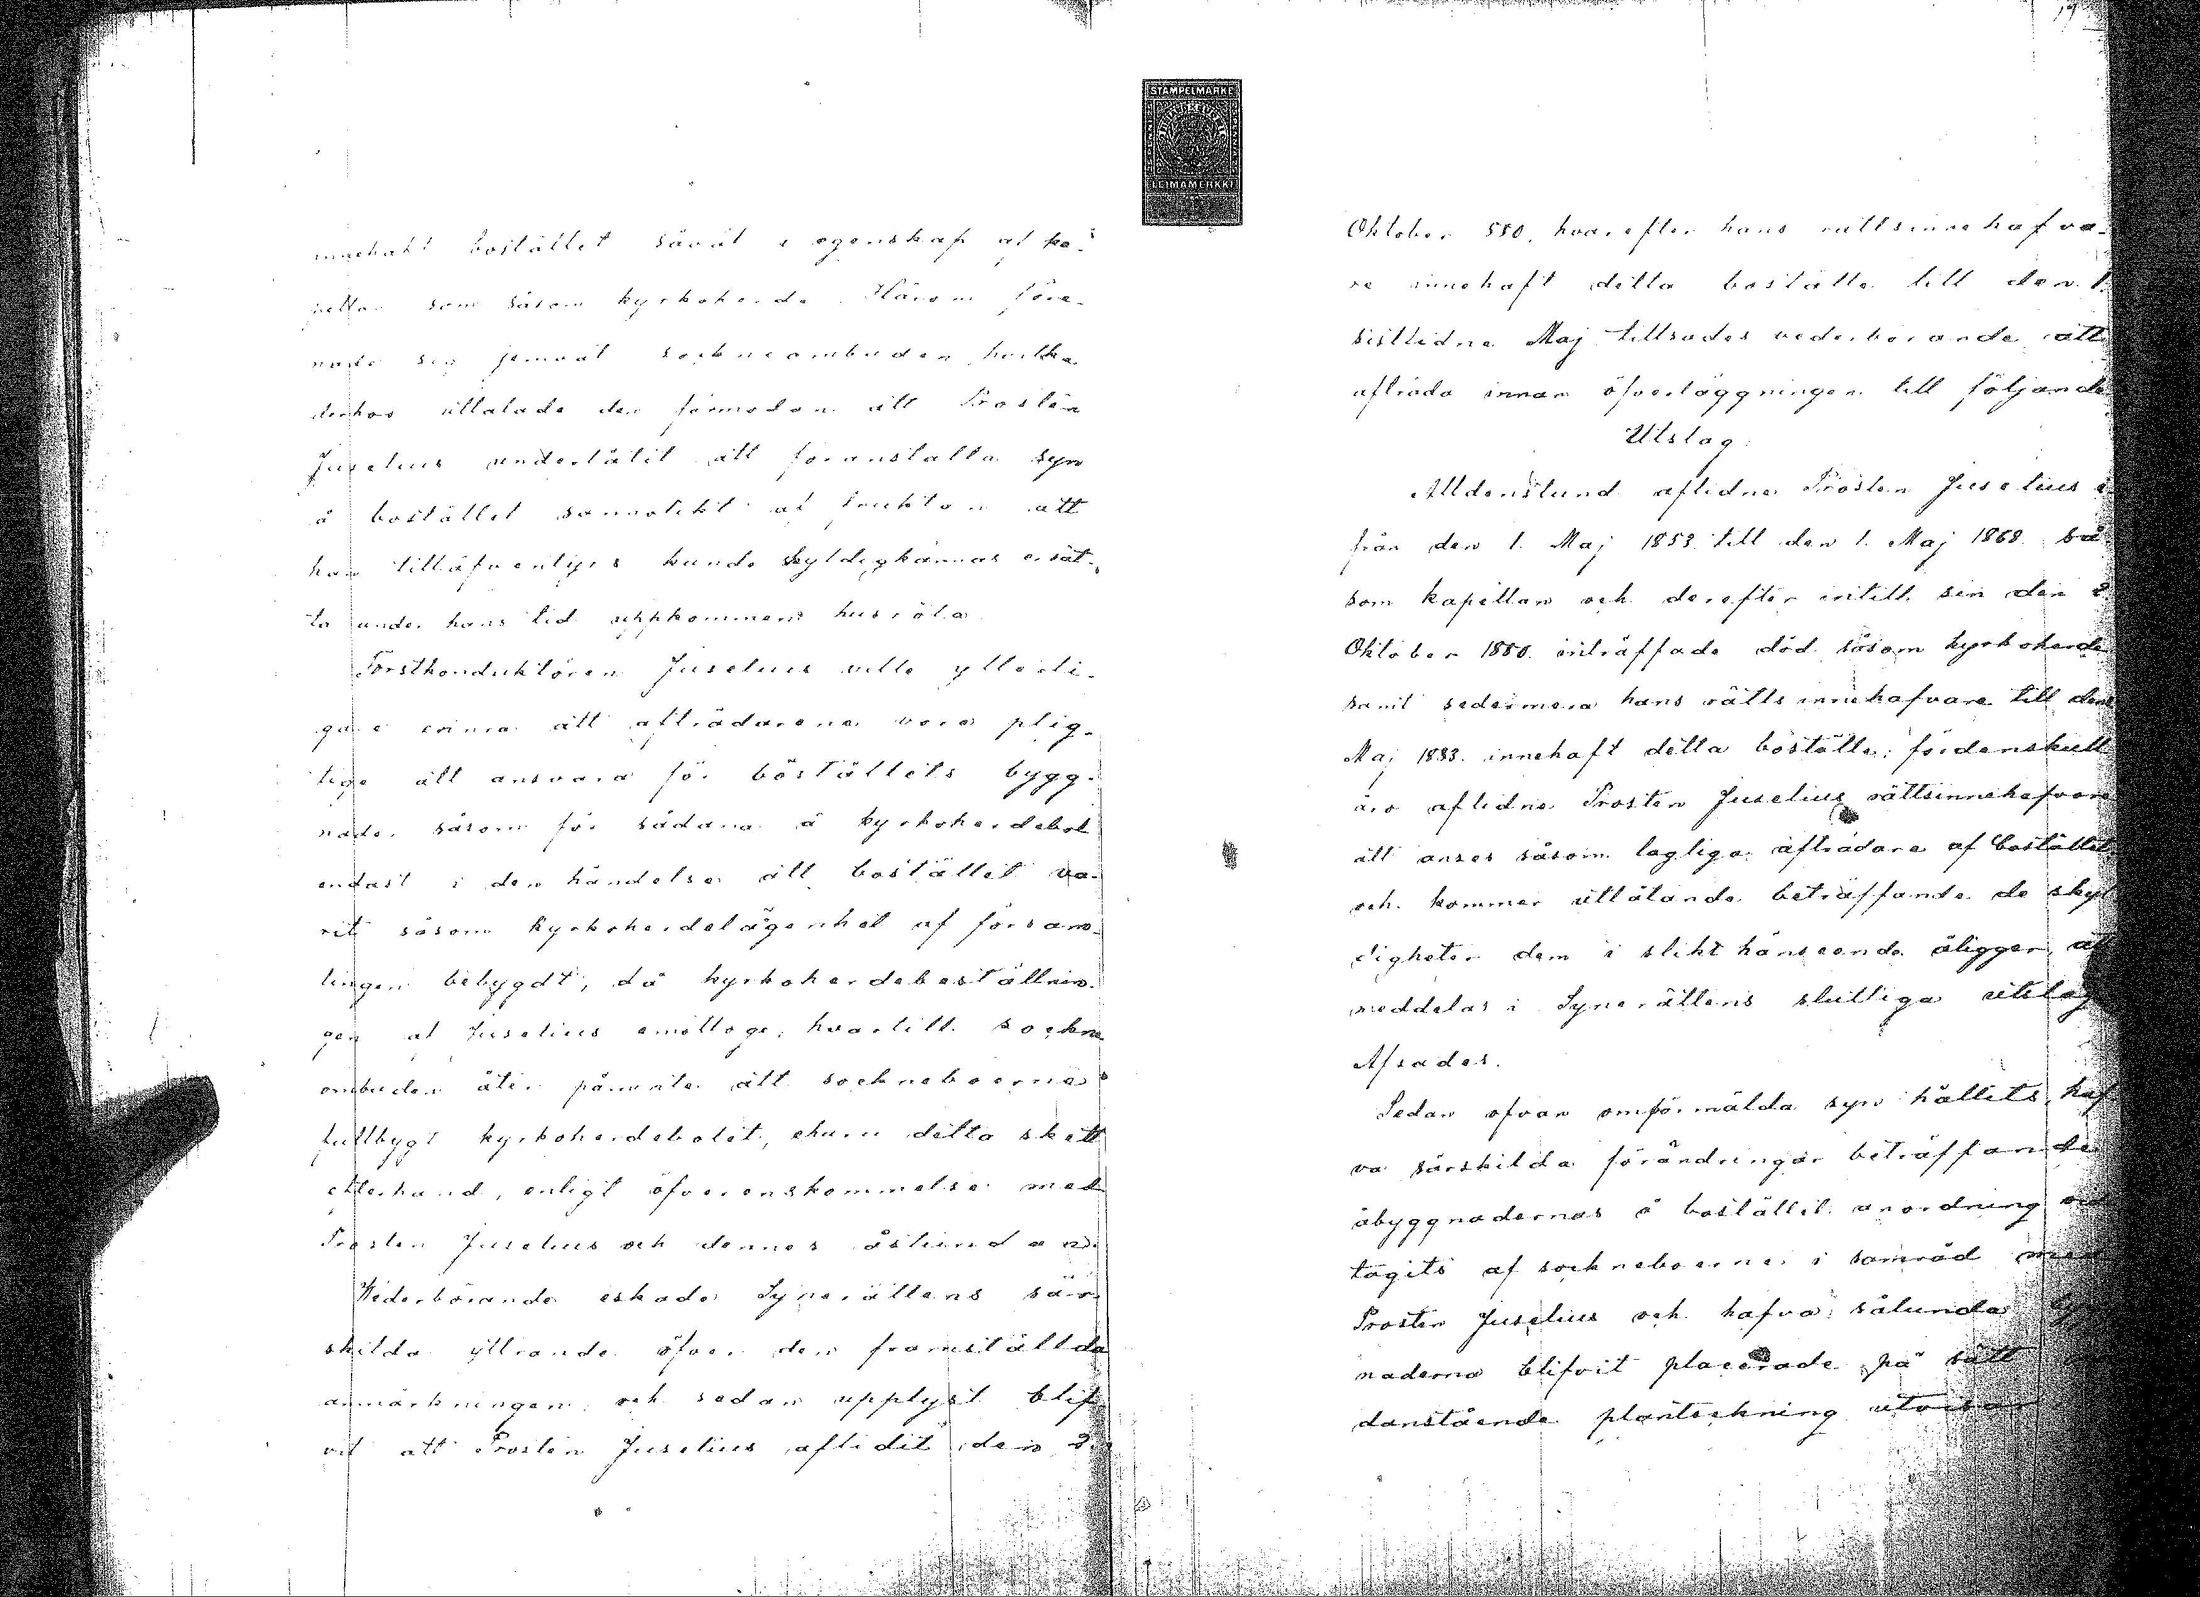 innehaft bostället såväl i egenskap af ka-
pellan som såsom kyrkoherde. Härom före-
nade sig jemväl sockneombuden, hvilka
derhos uttalade den förmodan att Prosten
Juselius underlåtit att föranstalta syn
å bostället sannolikt af fruktan att
han tilläfventyrs kunde skyldigkännas ersät-
ta under hans tid uppkommen husröta.
Forstkonduktören Juselius ville ytterli-
gare erinra att afträdarene voro plig-
tige att ansvara för böställets bygg-
nader såsom för sådana å kyrkoherdebol
endast i den händelse att bostället va-
rit såsom kyrkoherdelägenhet af försam-
lingen bebygdt, då kyrkoherdebeställnin-
gen af Juselius emottogs, hvartill sockne
ombuden åter påminte att sockneboerne
fullbygt kyrkoherdebolet, ehuru detta skett
efterhand, enligt öfverenskommelse med
Prosten Juselius och dennes åstundan.
Wederbörande eskade Synerättens sär-
skilda yttrande öfver den framställda
anmärkningen och sedan upplyst blif-
vit att Prosten Juselius aflidit den 2
STAMPELMÄRKE
LEIMAMERKKI
Oktober 880, hvarefter hans rättsinnehafva-
re innehaft detta boställe till den 1
sistlidne Maj tillsades vederbörande att
afträda innan öfverläggningen till följande
Utslag:
Alldenstund aflidne Prosten Juselius
från den 1. Maj 1853 till den 1. Maj 1868 så-
som kapellan och derefter intill sin den 2
Oktober 1880 inträffade död såsom kyrkoherde
samt sedermera hans rättsinnehafvare till den
Maj 1883 innehaft detta boställe; fördenskull
äro aflidne Prosten Juselius rättsinnehafvare
att anses såsom lagliga afträdare af bostället
och kommer utlåtande beträffande de skyl
digheter dem i slikt hänseende åligger, att
meddelas i Synerättens slutliga utslag
Afsades.
Sedan ofvan omförmälda syn hållits, haf
va särskilda förändringar beträffande
åbyggnadernas å bostället anordning
tagits af sockneboerne i samråd med
Prosten Juselius och hafva sålunda
naderna blifvit placerade på sätt
danstående planteckning utvisar